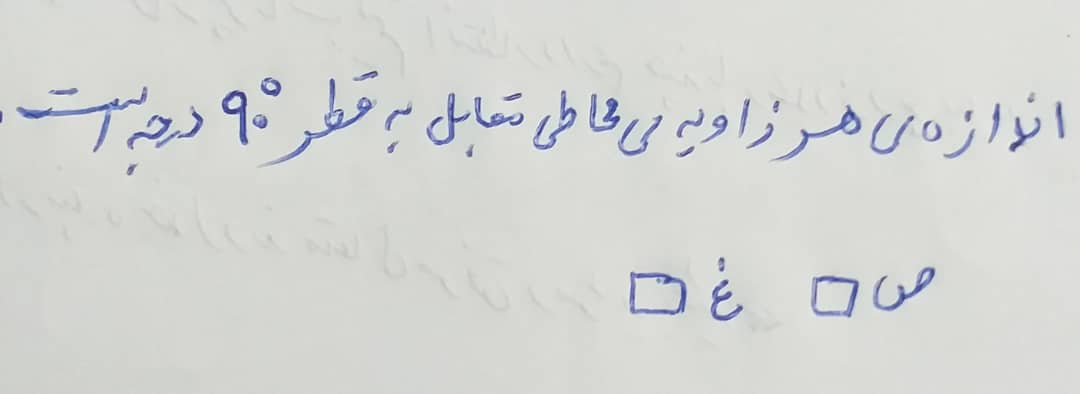 اندازه ی هر زاویه ی محاطی مقابل به قطر ۹۰° درجه است.
ص □ غ □